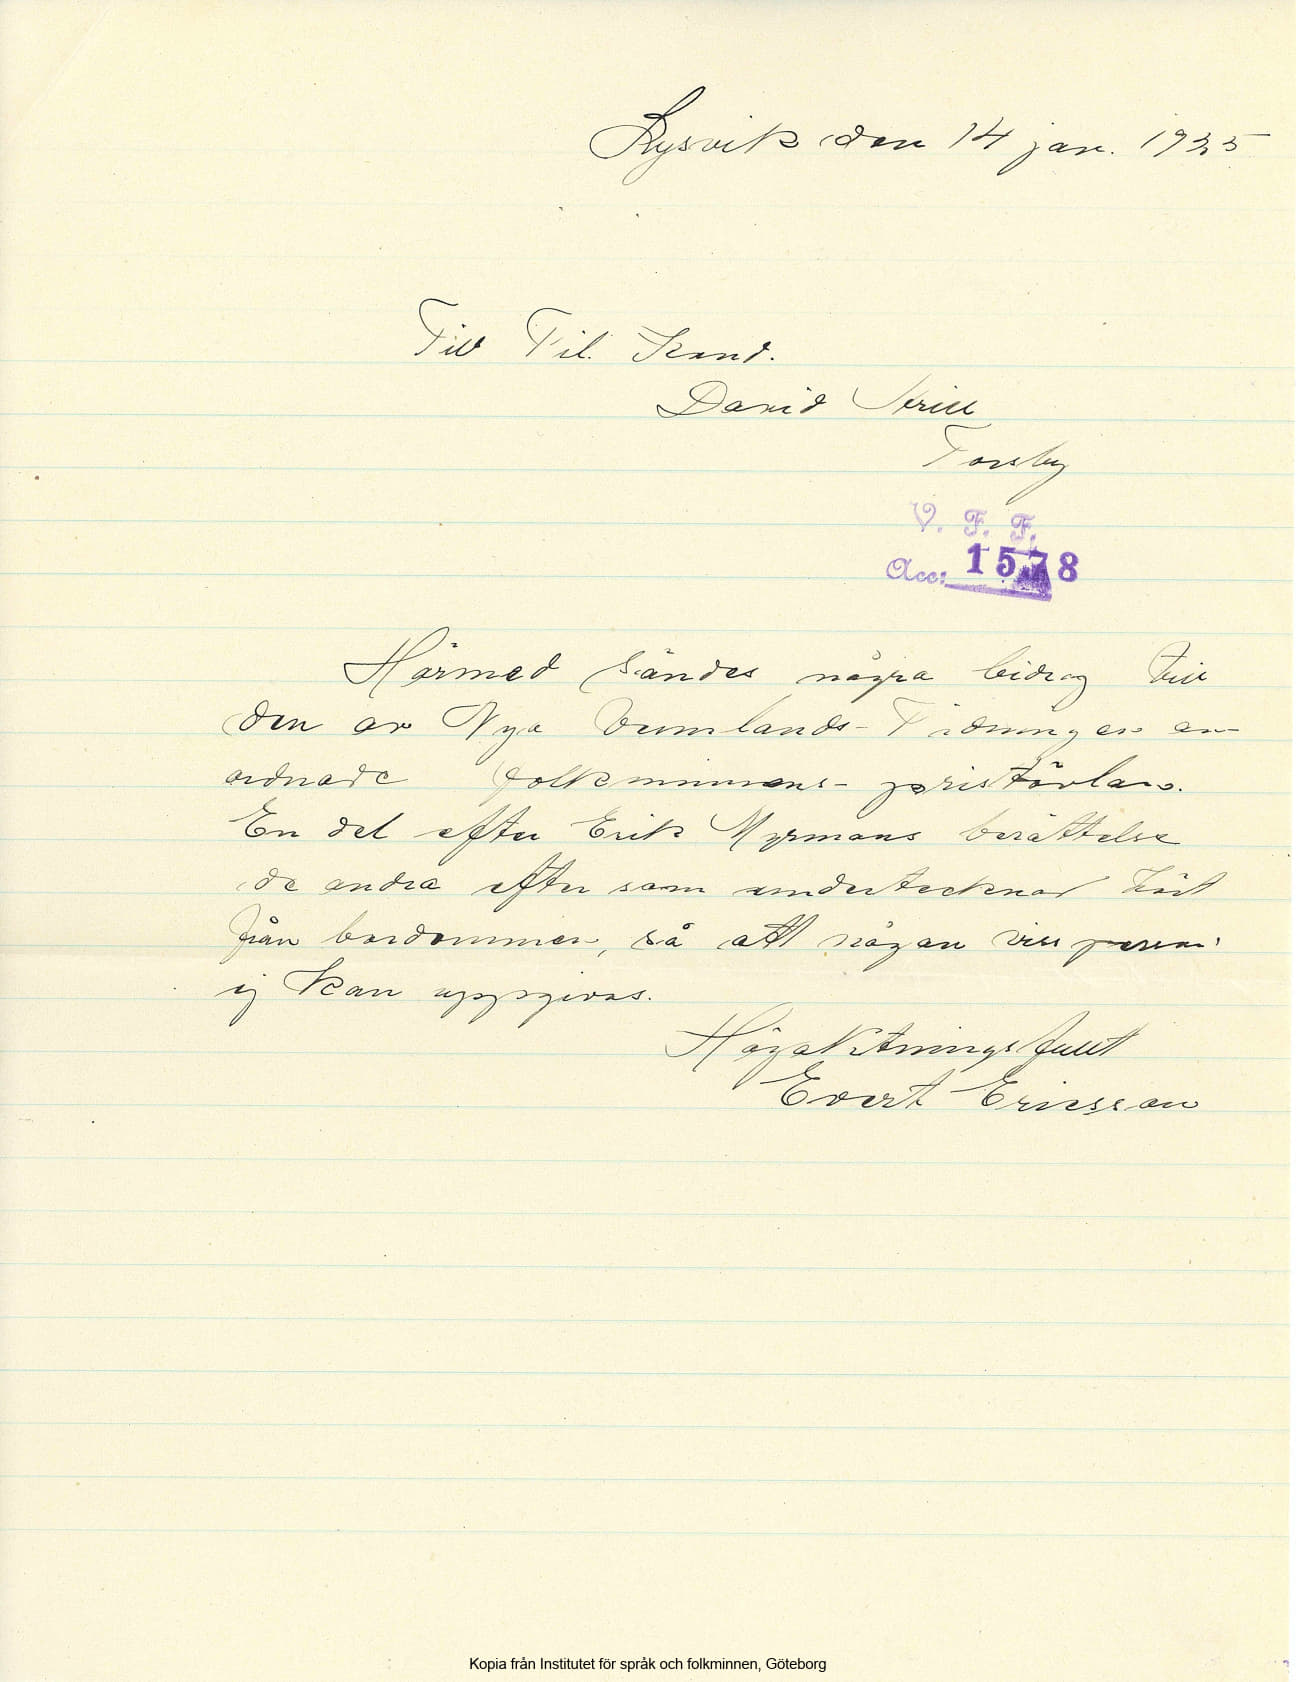 Lysvik den 14 jan. 1925
Till Fil. Kand.
David Arill
Torsby
V. F. F.
Acc: 1578
Härmed sändes några bidrag till
den av Nya Vermlands-Tidningen an-
ordnade folkminnens-pristävlan.
En del efter Erik Myrmans berättelse
de andra efter som undertecknad hört
från barndommen, så att någon viss person
ej kan uppgivas.
Högaktningsfullt
Evert Ericsson
Kopia från Institutet för språk och folkminnen, Göteborg